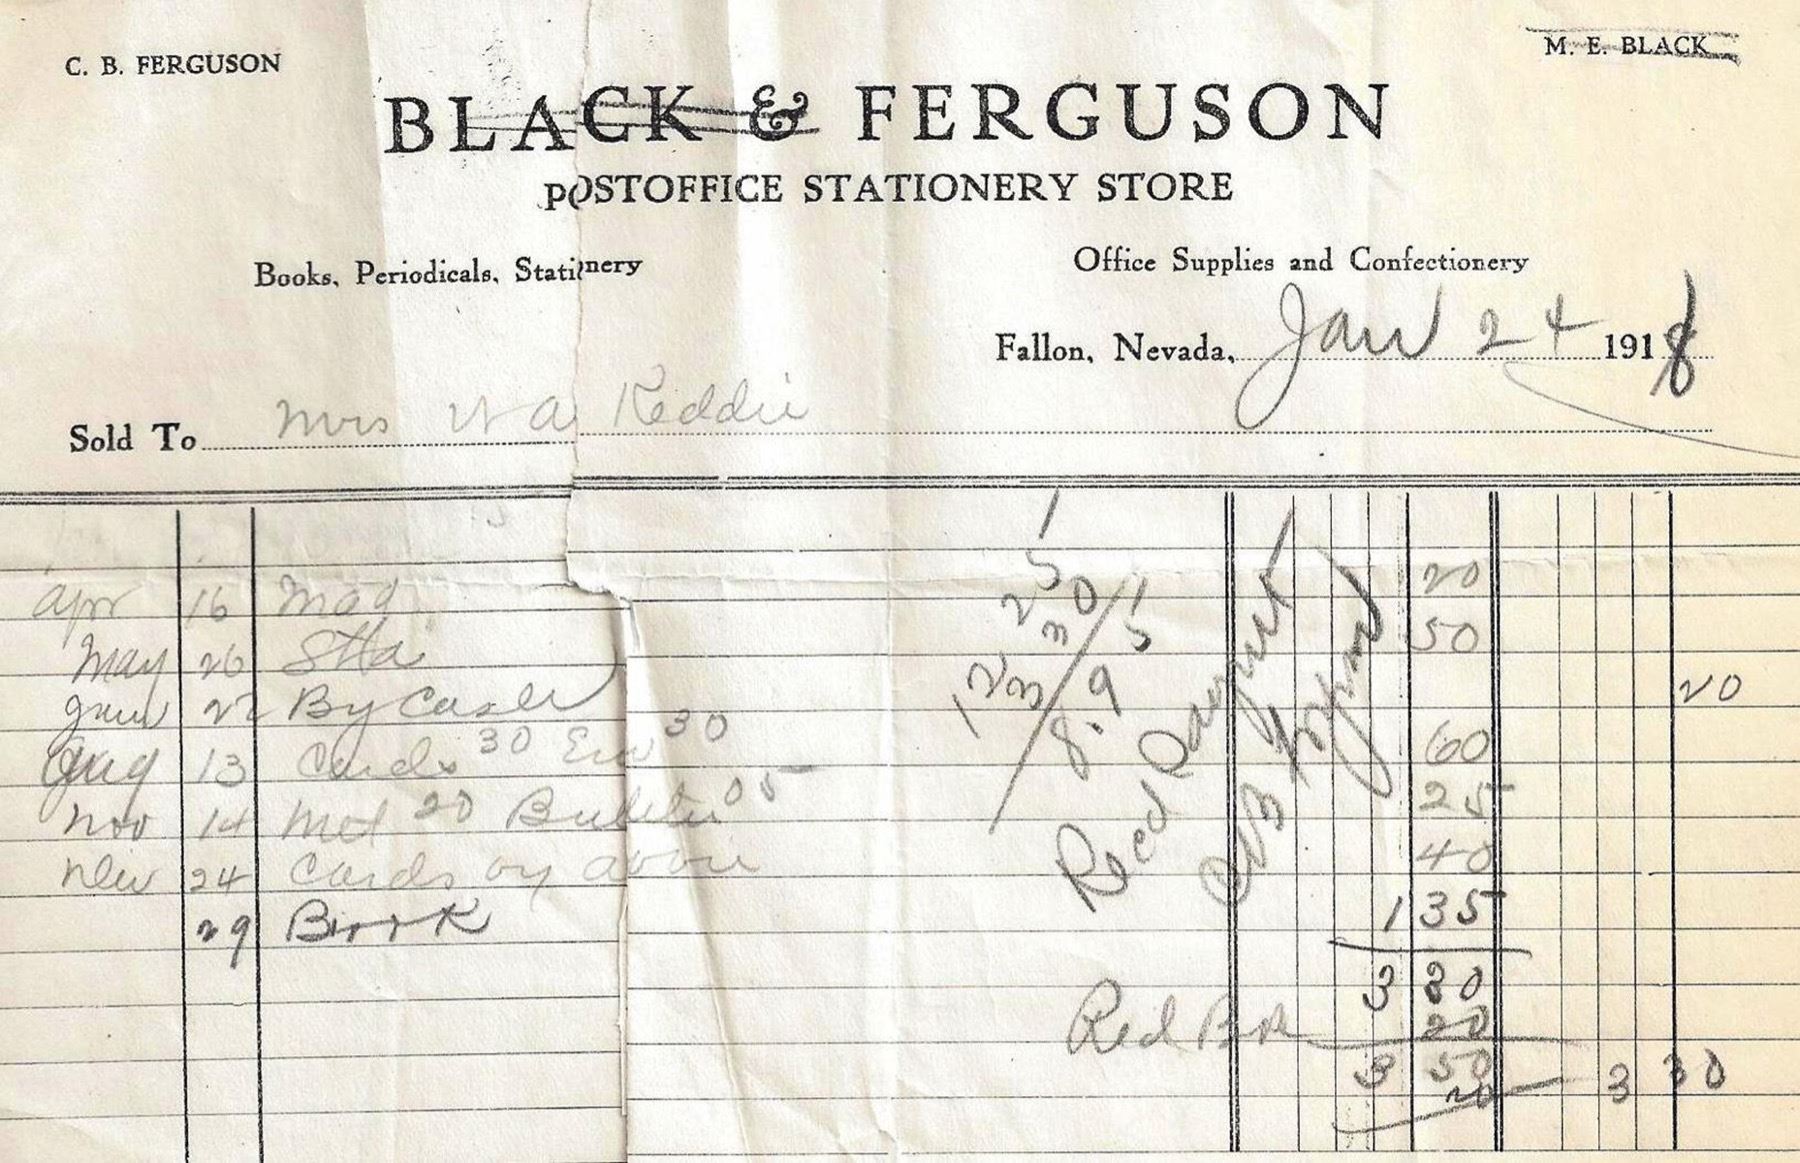 C. B. FERGUSON
M. E. BLACK
BLACK & FERGUSON
POSTOFFICE STATIONERY STORE
Books, Periodicals, Stationery
Office Supplies and Confectionery
Fallon, Nevada, Jan 24 1918
Sold To Mrs W A Reddie
Apr 16 Mag. 20
May 26 Sta 50
June 22 By Cash 20
Aug 13 Cards 30 Env 30 60
Nov 14 Md 20 Bulletin 05 25
24 Cards 40
29 Book 1 35
3 30
Red Bk 20
3 50
20
3 30
Recd Payment
CB Ferguson